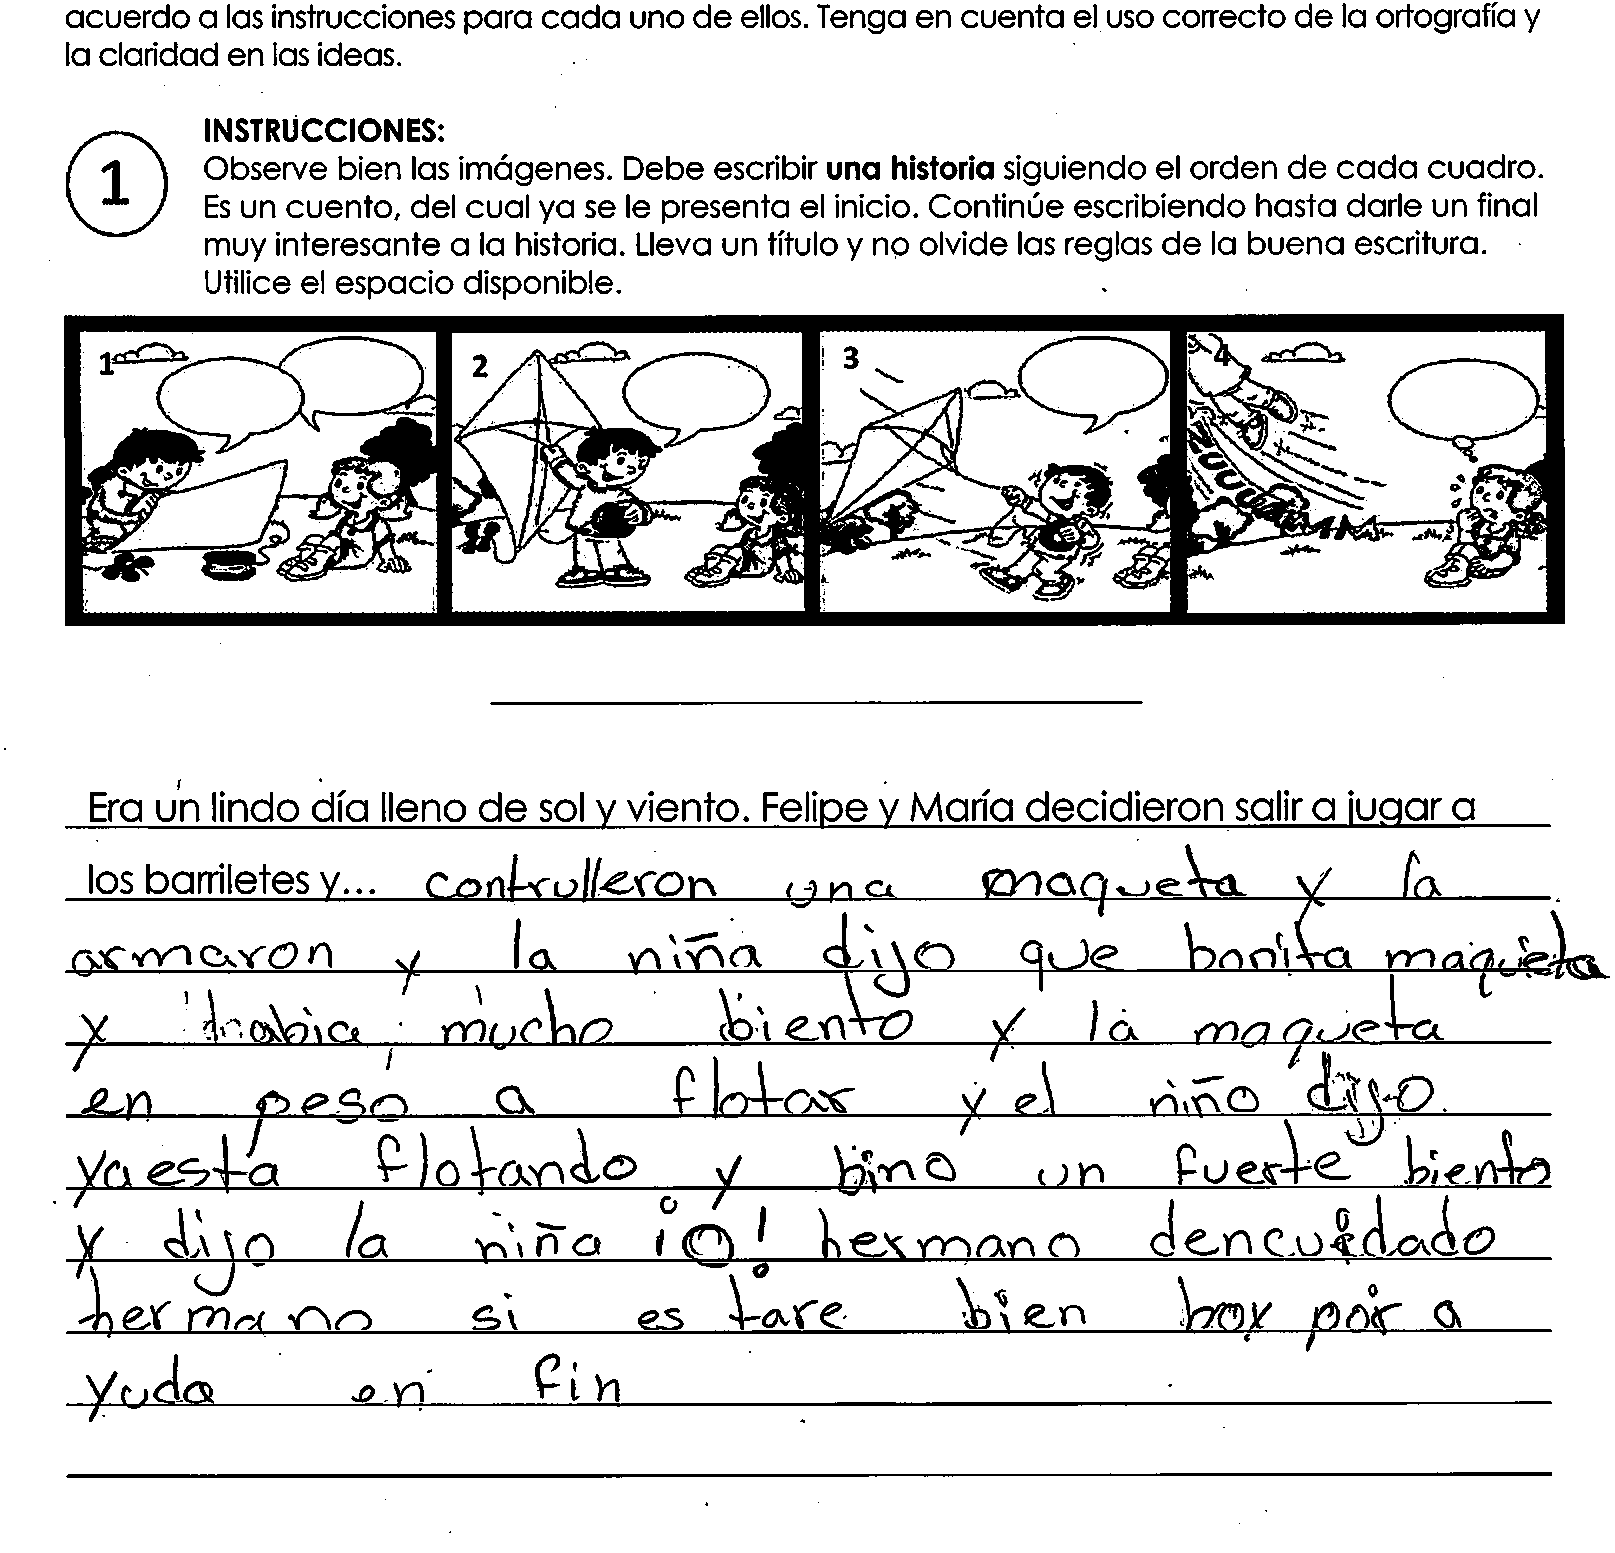 acuerdo a las instrucciones para cada uno de ellos. Tenga en cuenta el uso correcto de la ortografía y
la claridad en las ideas.
1
INSTRUCCIONES:
Observe bien las imágenes. Debe escribir una historia siguiendo el orden de cada cuadro.
Es un cuento, del cual ya se le presenta el inicio. Continúe escribiendo hasta darle un final
muy interesante a la historia. Lleva un título y no olvide las reglas de la buena escritura.
Utilice el espacio disponible.
1 2 3 4
Era un lindo día lleno de sol y viento. Felipe y María decidieron salir a jugar a
los barriletes y... contrulleron una maqueta y la
armaron y la niña dijo que bonita maqueta
y habia mucho biento y la maqueta
en peso a flotar y el niño dijo.
ya está flotando y bino un fuerte biento
y dijo la niña ¡O! hermano dencuidado
hermano si es tare bien boy por a
yuda en fin